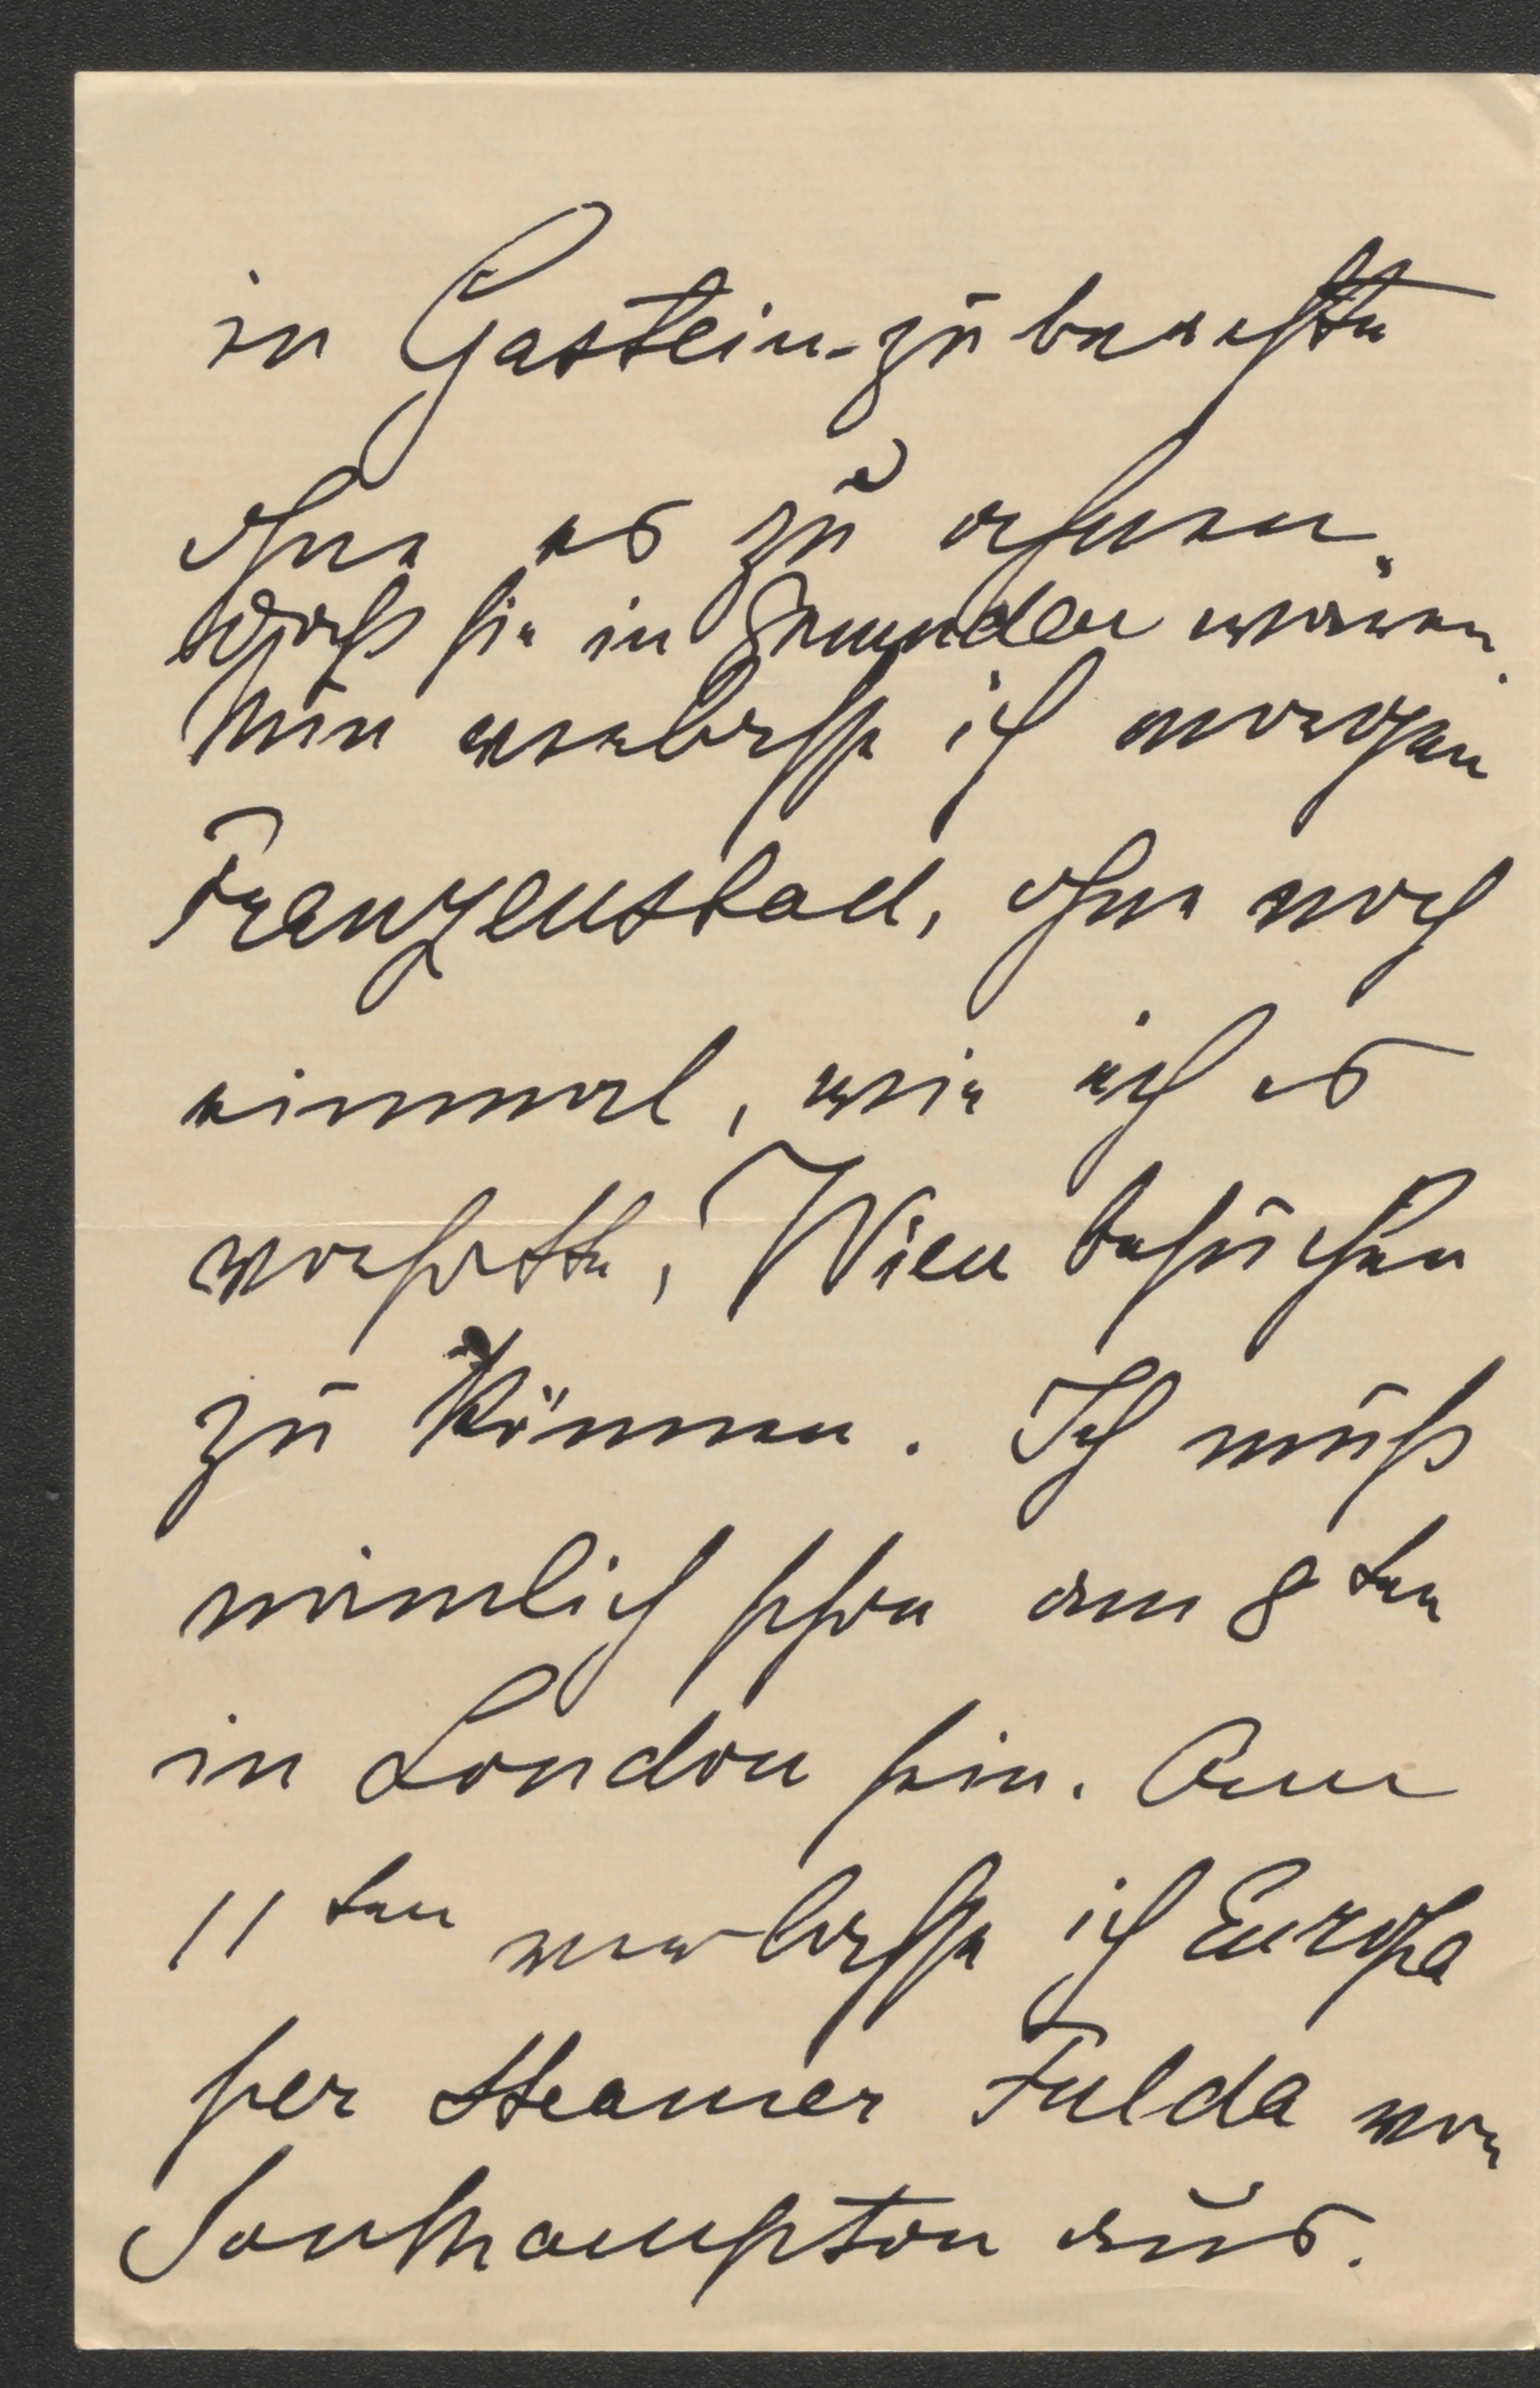 in Gastein zubrachte
ohne es zu ahnen,
daß sie in Gmunden waren.
Nun verlasse ich morgen
Franzensbad, ohne noch
einmal, wie ich es
vorhatte, Wien besuchen
zu können. Ich muß
nämlich schon am 8ten
in London sein. Am
11ten verlasse ich Europa
per Steamer Fulda von
Southampton aus.